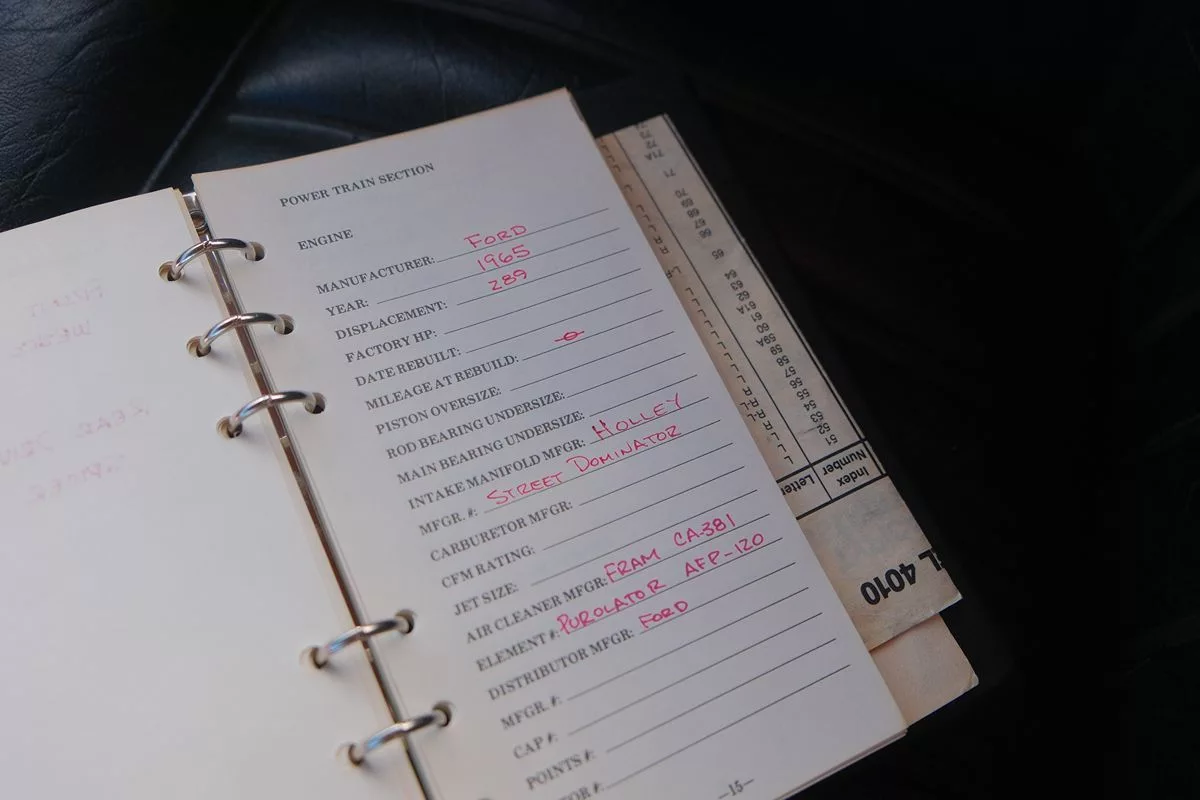 POWER TRAIN SECTION
ENGINE
MANUFACTURER: FORD
YEAR: 1965
DISPLACEMENT: 289
FACTORY HP:
DATE REBUILT:
MILEAGE AT REBUILD: ⊖
PISTON OVERSIZE:
ROD BEARING UNDERSIZE:
MAIN BEARING UNDERSIZE:
INTAKE MANIFOLD MFGR: HOLLEY
MFGR. #: STREET DOMINATOR
CARBURETOR MFGR:
CFM RATING:
JET SIZE:
AIR CLEANER MFGR: FRAM CA-381
ELEMENT #: PUROLATOR AFP-120
DISTRIBUTOR MFGR: FORD
MFGR. #:
CAP #:
POINTS #:
—15—
4010
Index Number Letter
51
52
53
54
55
56
57
58
59
59A
60
61
61A
62
63
64
65
66
67
68
69
70
71
71A
72
73